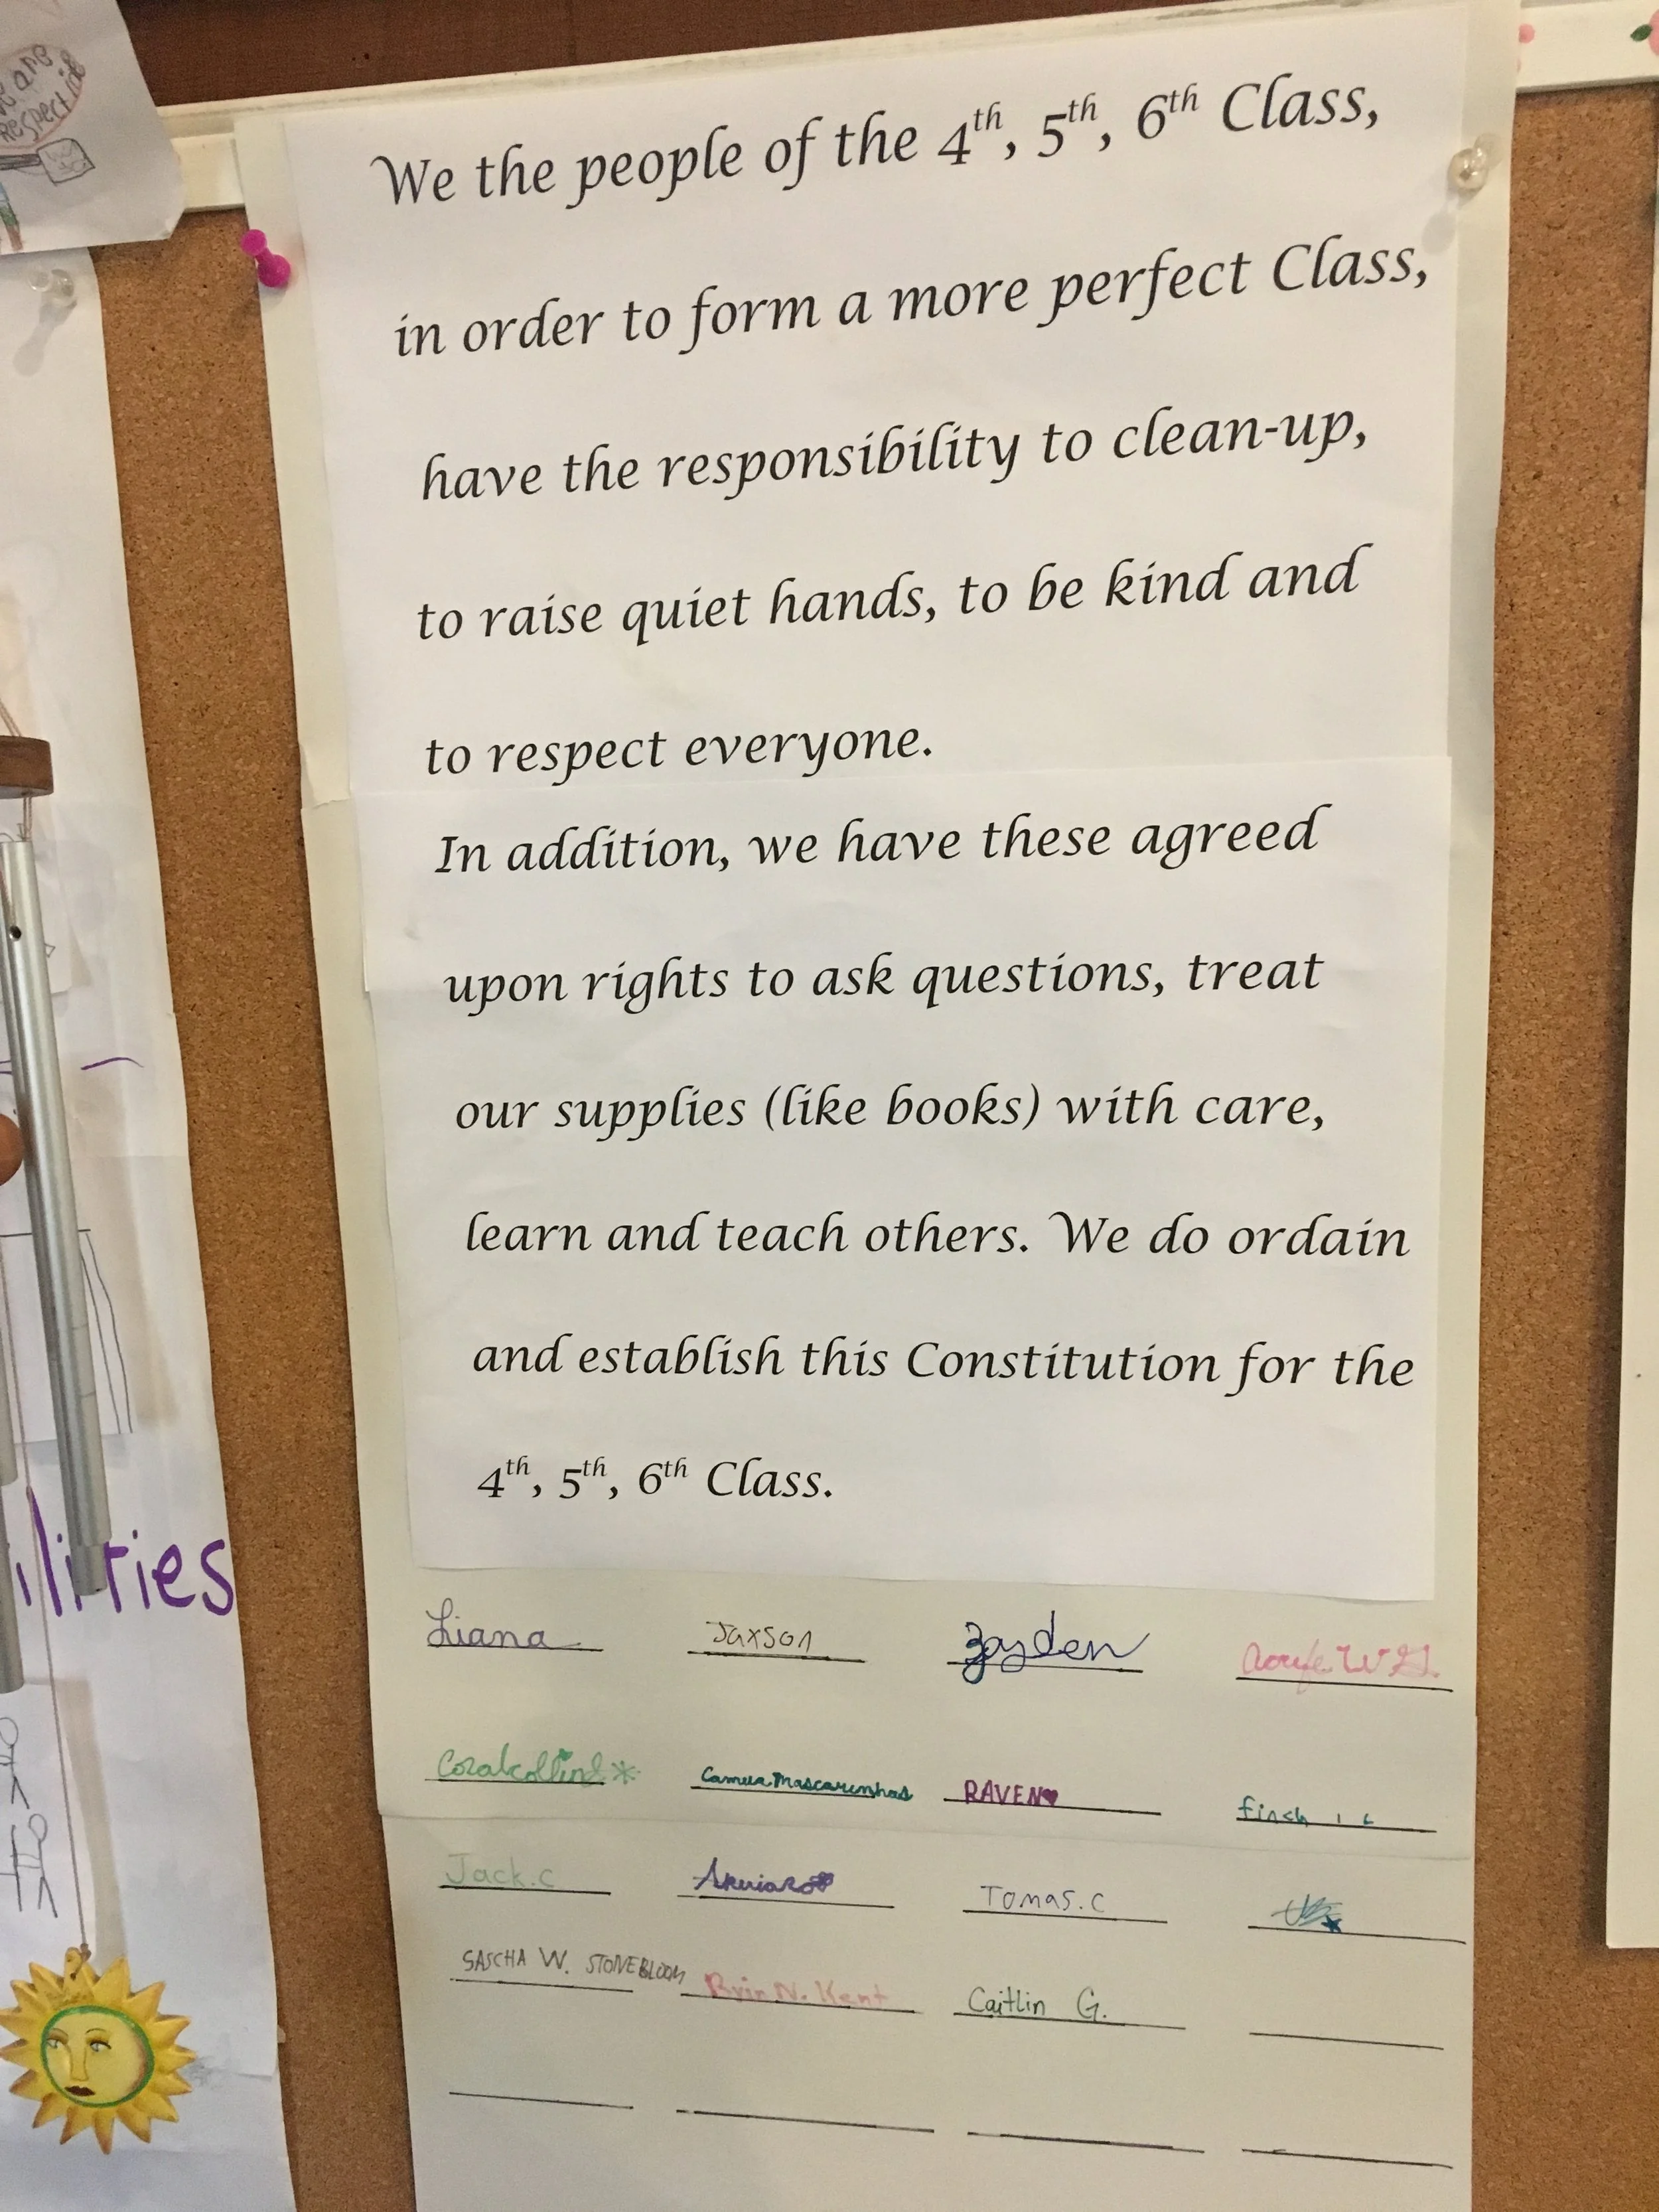 We are
respectful
We the people of the 4th, 5th, 6th Class,
in order to form a more perfect Class,
have the responsibility to clean-up,
to raise quiet hands, to be kind and
to respect everyone.
In addition, we have these agreed
upon rights to ask questions, treat
our supplies (like books) with care,
learn and teach others. We do ordain
and establish this Constitution for the
4th, 5th, 6th Class.
ilities
Liana Jaxson Zayden
Coral Collins Mascarenhas RAVEN finch
Jack.c Tomas.C
SASCHA W. STONEBLOOM N. Kent Caitlin G.